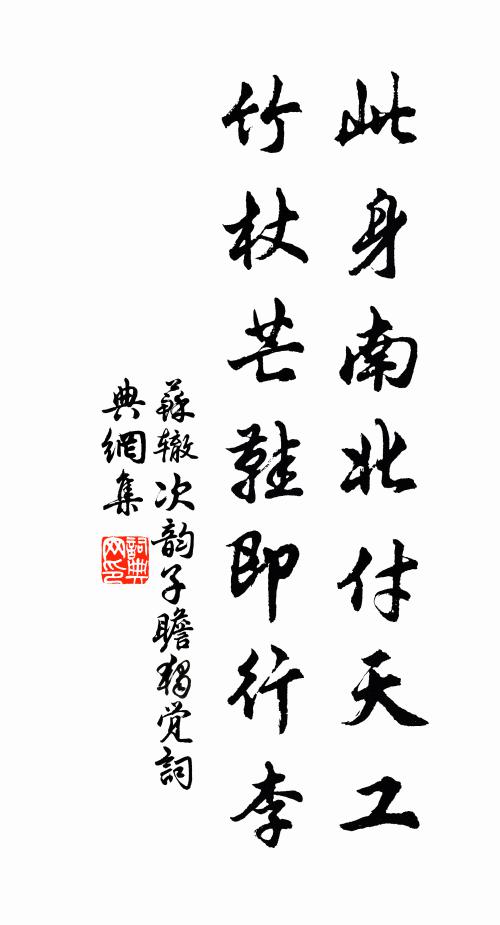 此身南北付天工
竹杖芒鞋即行李
蘇辙次韵子瞻獨覺詞
典網集
詞典
网印